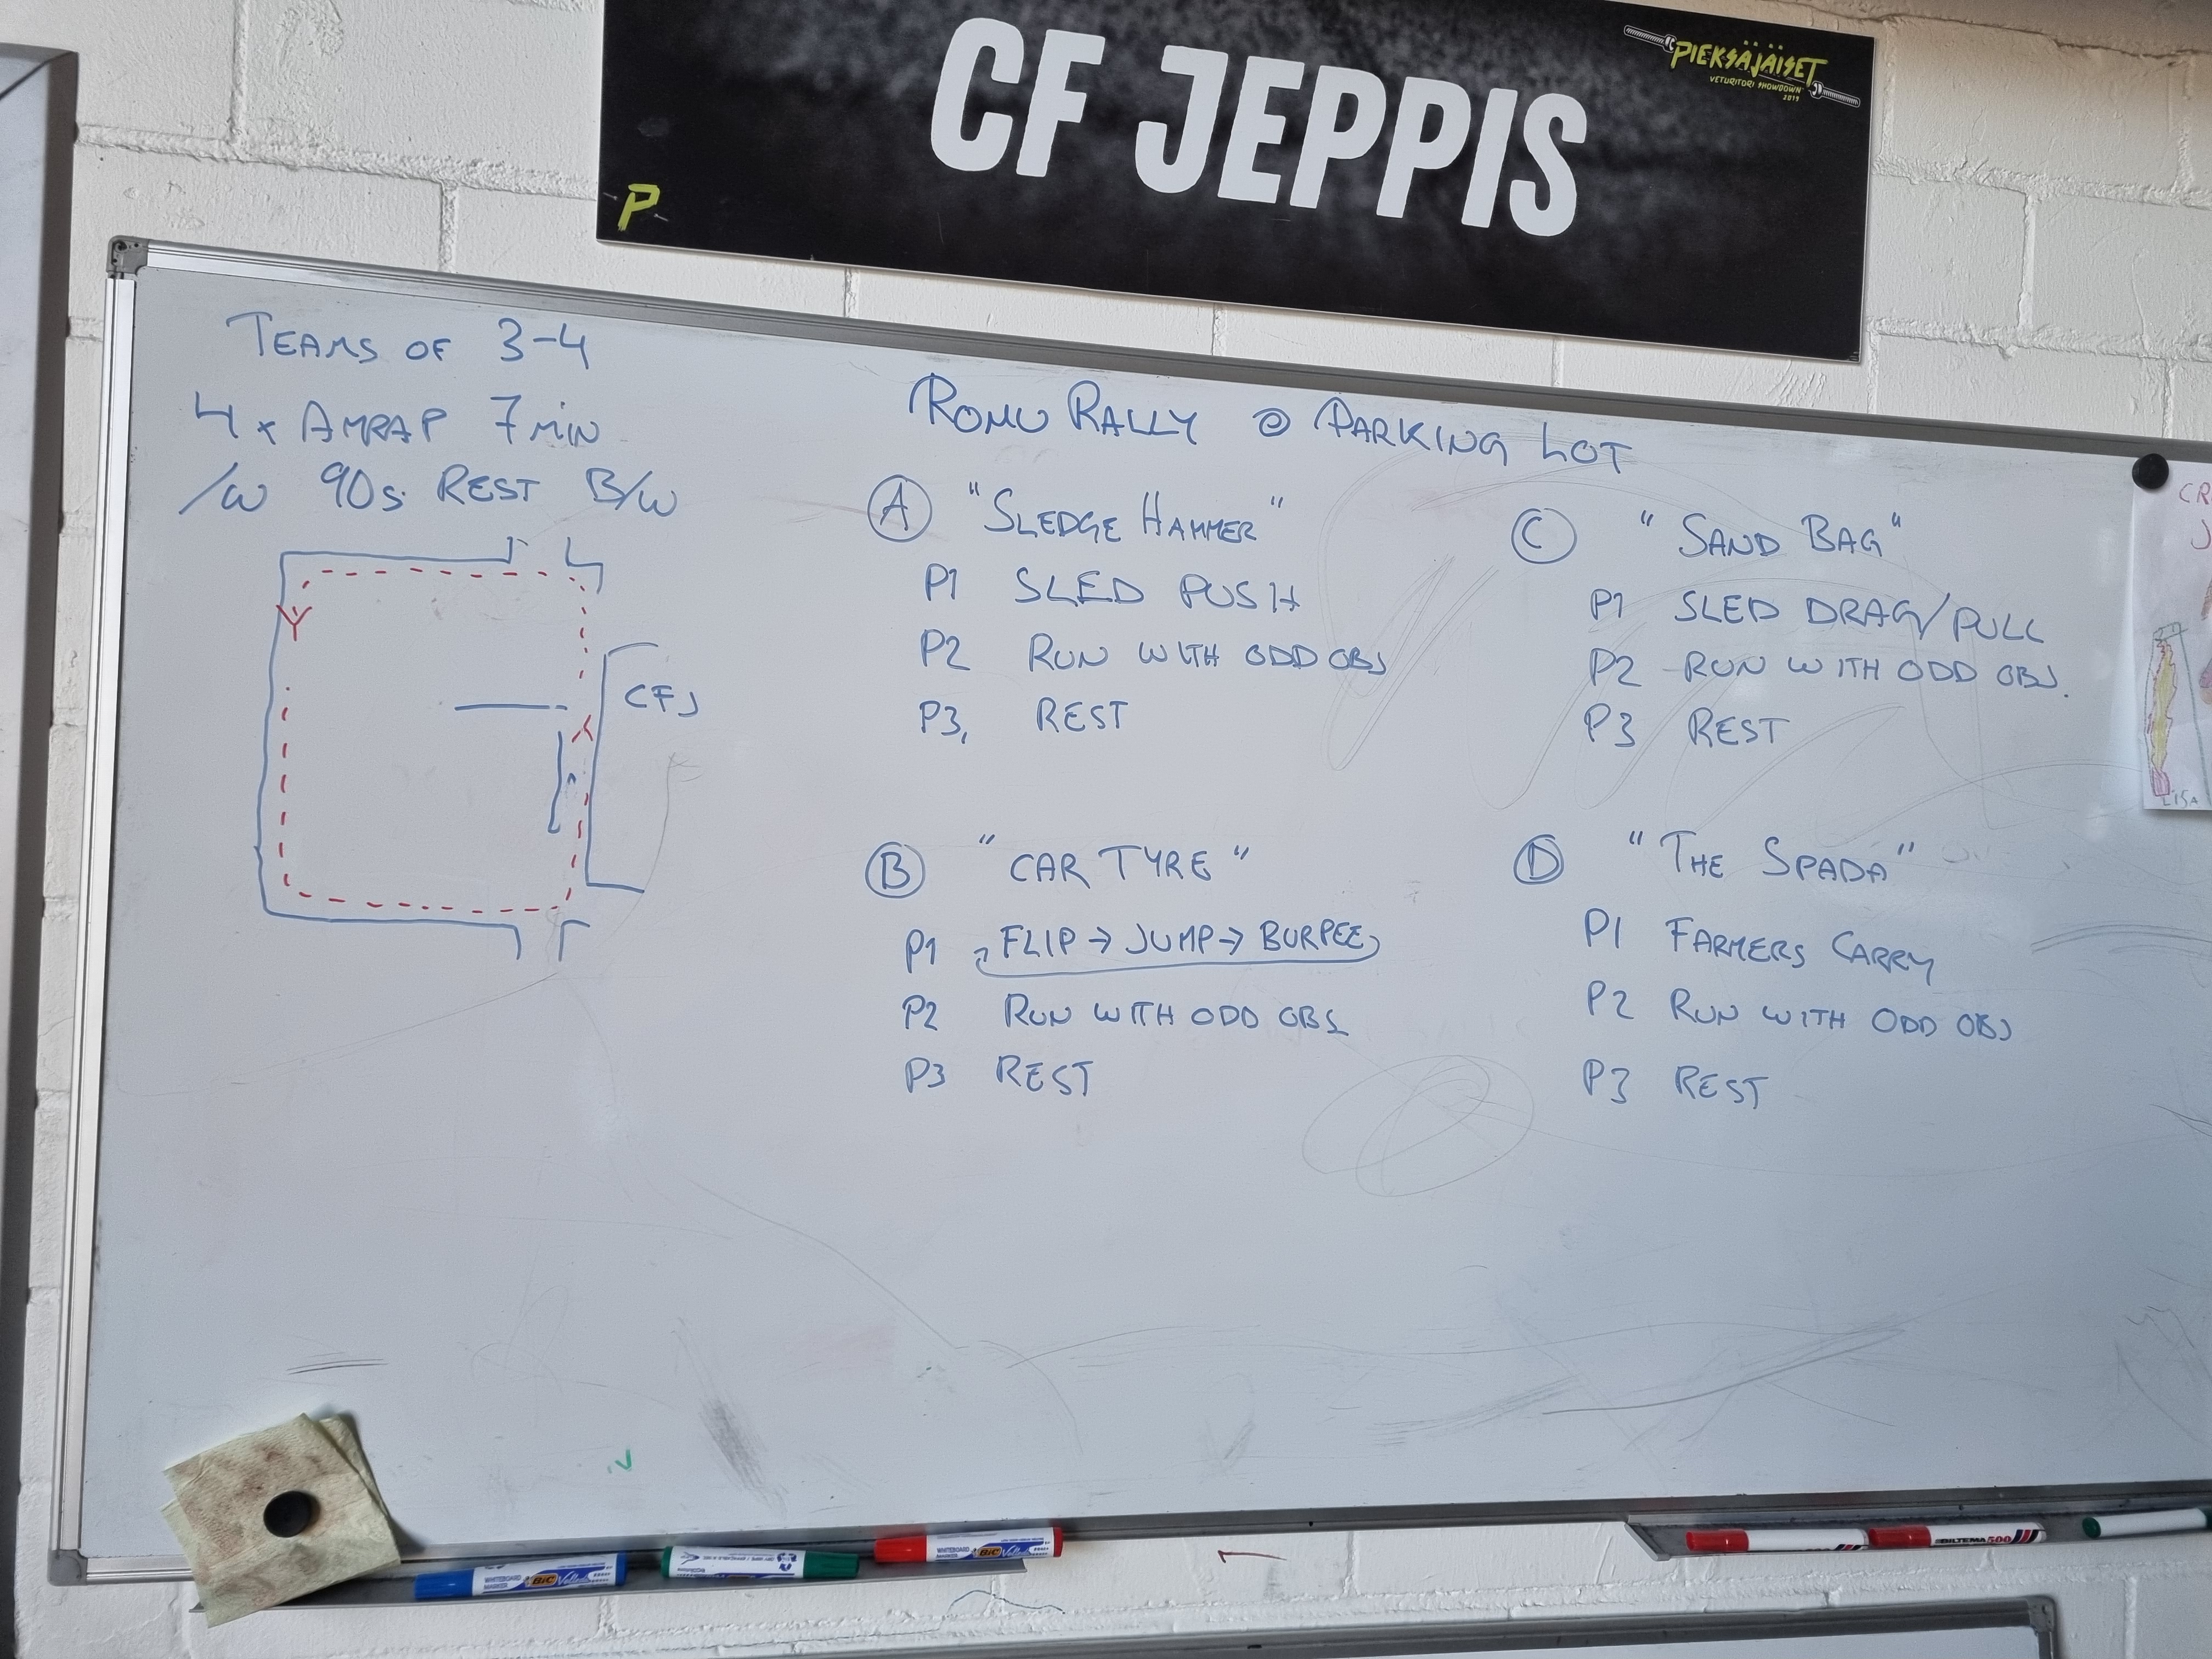 CF JEPPIS
PIEKSÄJÄISET
VETURITORI SHOWDOWN
2019
P
TEAMS OF 3-4
4 x AMRAP 7 MIN
/W 90s REST B/W
CFJ
ROMU RALLY @ PARKING LOT
A "SLEDGE HAMMER"
P1 SLED PUSH
P2 RUN WITH ODD OBJ
P3, REST
B "CAR TYRE"
P1 FLIP → JUMP → BURPEE
P2 RUN WITH ODD OBJ
P3 REST
C "SAND BAG"
P1 SLED DRAG/PULL
P2 RUN WITH ODD OBJ.
P3 REST
D "THE SPADA"
P1 FARMERS CARRY
P2 RUN WITH ODD OBJ
P3 REST
CR
J
LISA
WHITEBOARD MARKER BIC Velleda
WHITEBOARD MARKER BIC Velleda
BILTEMA 500